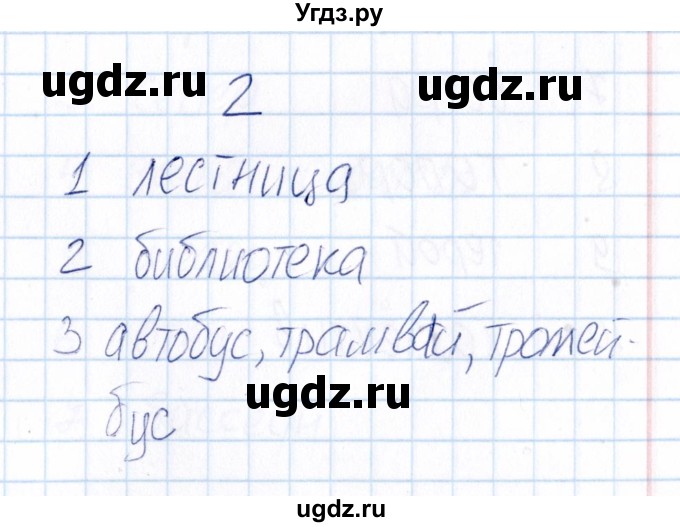 Угдз.ру
ugdz.ru ugdz.ru
2
1 лестница
2 библиотека
3 автобус, трамвай, тролей-
ugdz.ru
бус
ugdz.ru